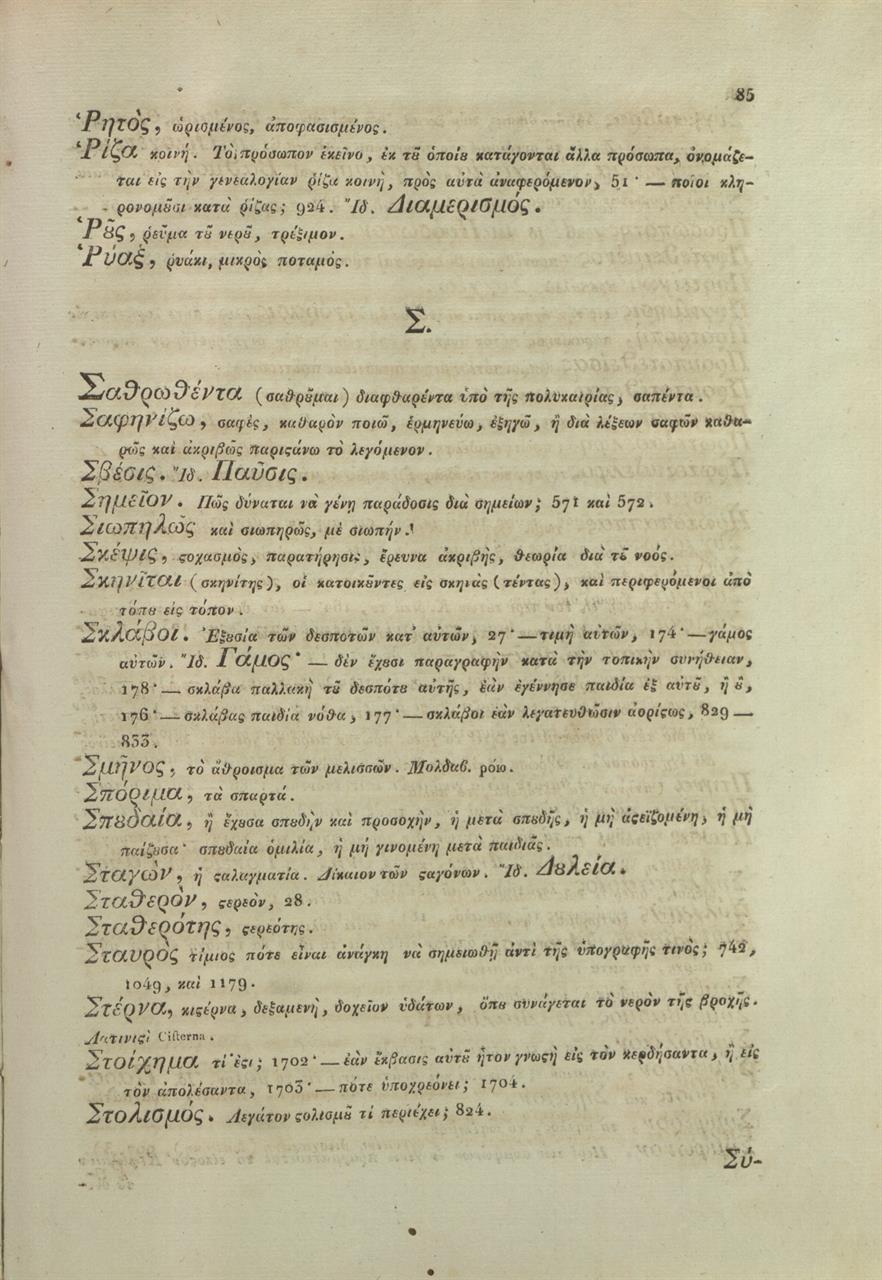 85
Ῥητὸς, ὡρισμένος, ἀποφασισμένος.
Ῥίζα κοινή. Τὸ πρόσωπον ἐκεῖνο, ἐκ τȣ͂ ὁποίȣ κατάγονται ἄλλα πρόσωπα, ὀνομάζε-
ται εἰς τὴν γενεαλογίαν ῥίζα κοινὴ, πρὸς αὐτὰ ἀναφερόμενον, 51· — ποῖοι κλη-
ρονομȣ͂σι κατὰ ῥίζας; 924. Ἴδ. Διαμερισμός.
Ῥȣ͂ς, ῥεῦμα τȣ͂ νερȣ͂, τρέξιμον.
Ῥύαξ, ῥυάκι, μικρὸς ποταμός.
Σ.
Σαθρωθέντα (σαθρȣ͂μαι) διαφθαρέντα ὑπὸ τῆς πολυκαιρίας, σαπέντα.
Σαφηνίζω, σαφὲς, καθαρὸν ποιῶ, ἑρμηνεύω, ἐξηγῶ, ἢ διὰ λέξεων σαφῶν καθα-
ρῶς καὶ ἀκριβῶς παριϛάνω τὸ λεγόμενον.
Σβέσις. Ἴδ. Παῦσις.
Σημεῖον. Πῶς δύναται νὰ γένῃ παράδοσις διὰ σημείων; 571 καὶ 572.
Σιωπηλῶς καὶ σιωπηρῶς, μὲ σιωπήν.
Σκέψις, ϛοχασμὸς, παρατήρησις, ἔρευνα ἀκριβὴς, θεωρία διὰ τȣ͂ νοός.
Σκηνῖται (σκηνίτης), οἱ κατοικȣ͂ντες εἰς σκηνὰς (τέντας), καὶ περιφερόμενοι ἀπὸ
τόπȣ εἰς τόπον.
Σκλάβοι. Ἐξȣσία τῶν δεσποτῶν κατ᾽ αὐτῶν, 27· — τιμὴ αὐτῶν, 174· — γάμος
αὐτῶν. Ἴδ. Γάμος· — δὲν ἔχȣσι παραγραφὴν κατὰ τὴν τοπικὴν συνήθειαν,
178· — σκλάβα παλλακὴ τȣ͂ δεσπότȣ αὐτῆς, ἐὰν ἐγέννησε παιδία ἐξ αὐτȣ͂, ἢ ȣ̓,
176· — σκλάβας παιδία νόθα, 177· — σκλάβοι ἐὰν λεγατευθῶσιν ἀορίϛως, 829 —
833.
Σμῆνος, τὸ ἄθροισμα τῶν μελισσῶν. Μολδαβ. ρόιο.
Σπόριμα, τὰ σπαρτά.
Σπȣδαία, ἡ ἔχȣσα σπȣδὴν καὶ προσοχὴν, ἡ μετὰ σπȣδῆς, ἡ μὴ ἀϛεϊζομένη, ἡ μὴ
παίζȣσα· σπȣδαία ὁμιλία, ἡ μὴ γινομένη μετὰ παιδιᾶς.
Σταγὼν, ἡ ϛαλαγματία. Δίκαιον τῶν ϛαγόνων. Ἴδ. Δȣλεία.
Σταθερὸν, ϛερεὸν, 28.
Σταθερότης, ϛερεότης.
Σταυρὸς τίμιος πότε εἶναι ἀνάγκη νὰ σημειωθῇ ἀντὶ τῆς ὑπογραφῆς τινός; 742,
1049, καὶ 1179.
Στέρνα, κιϛέρνα, δεξαμενὴ, δοχεῖον ὑδάτων, ὅπȣ συνάγεται τὸ νερὸν τῆς βροχῆς.
Λατινιϛὶ Cisterna.
Στοίχημα τί ἐϛι; 1702· — ἐὰν ἔκβασις αὐτȣ͂ ἦτον γνωϛὴ εἰς τὸν κερδήσαντα, ἢ εἰς
τὸν ἀπολέσαντα, 1703· — πότε ὑποχρεόνει; 1704.
Στολισμός. Λεγάτον ϛολισμȣ͂ τί περιέχει; 824.
Σύ-